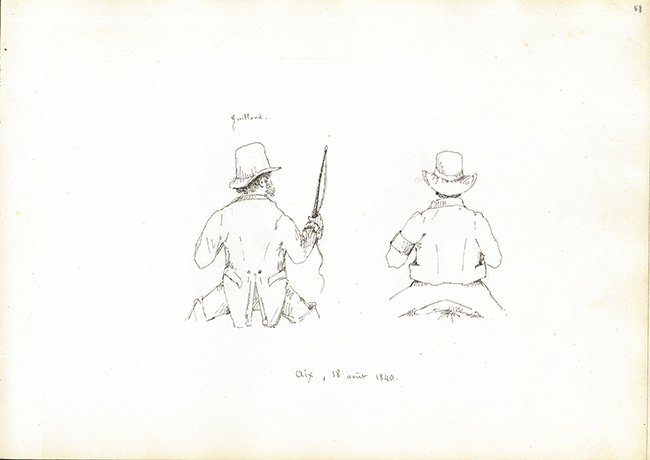 48
Guilland.
Aix, 18 août 1840.